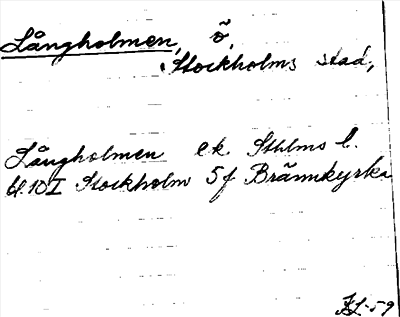 Långholmen, ö,
Stockholms stad,
Långholmen ek. Sthlms l.
bl. 10I Stockholm 5f Brännkyrka